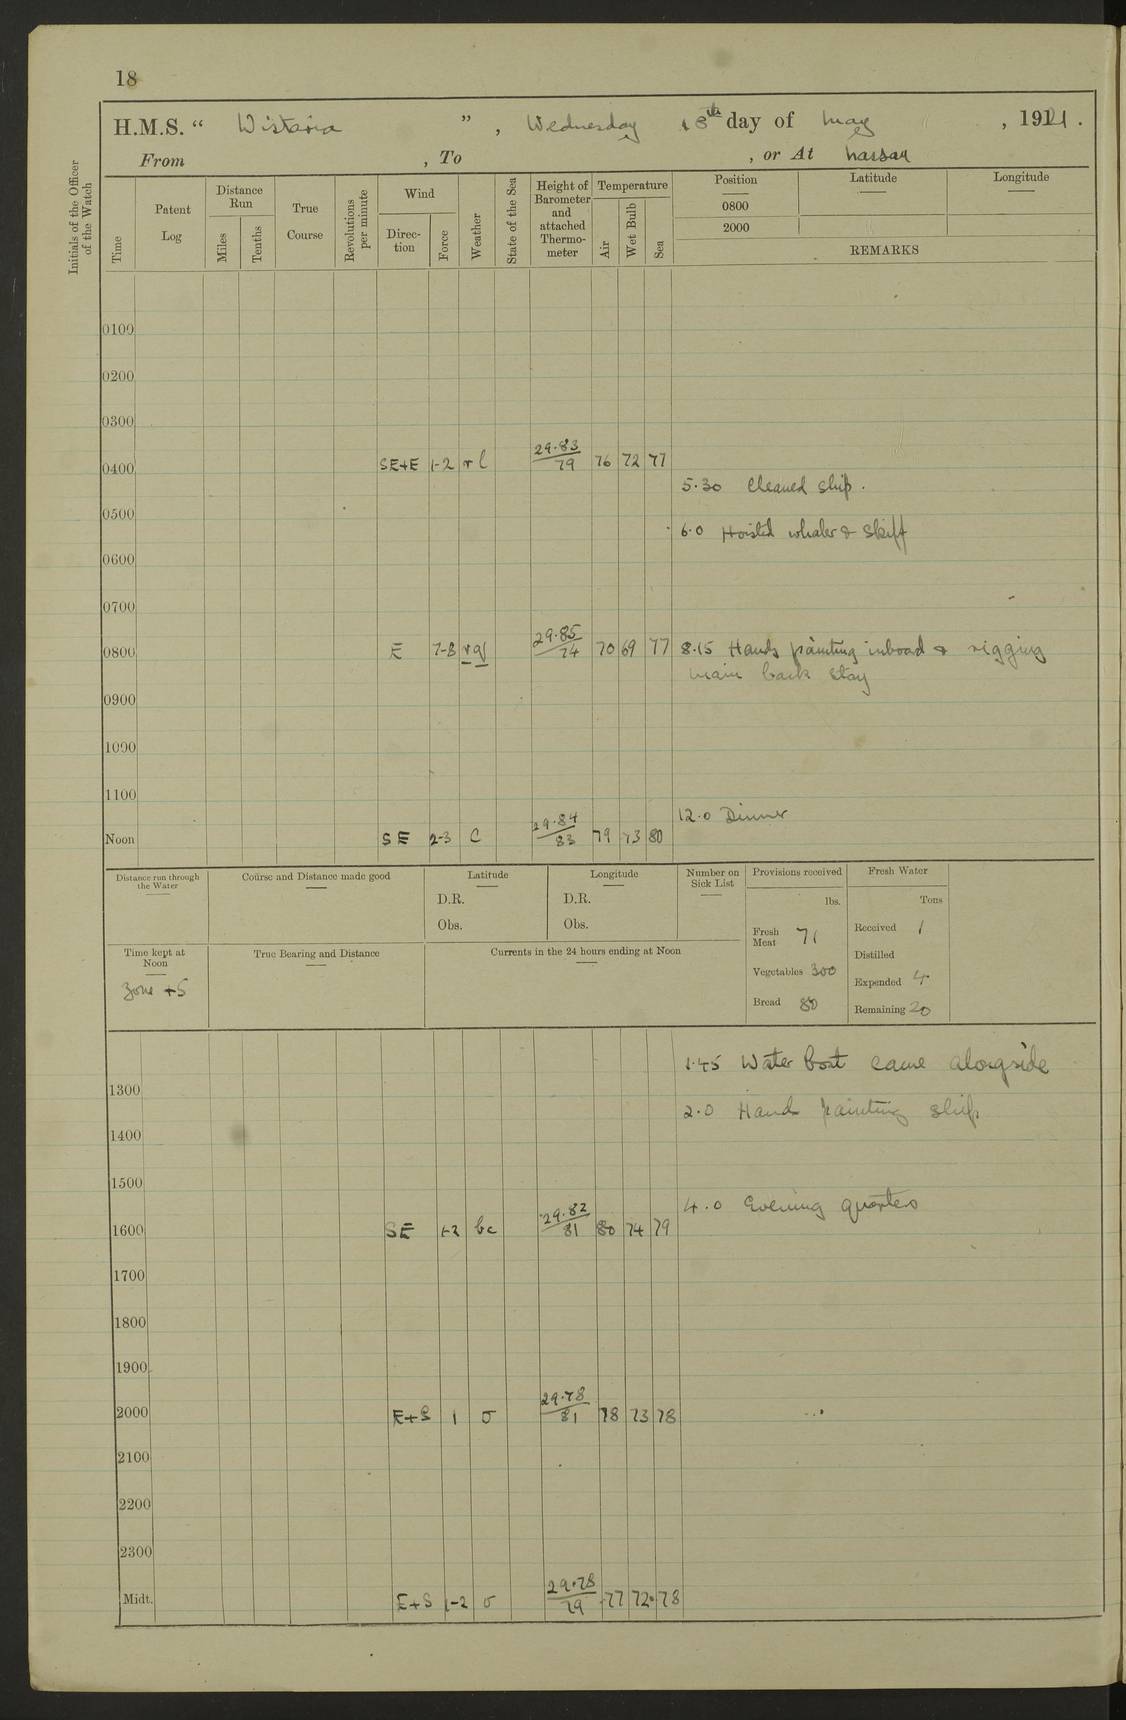 18
H.M.S. “ Wistaria ” , Wednesday 18th day of May , 1921 .
From , To , or At Nassau
Initials of the Officer of the Watch
Time
Patent Log
Distance Run
Miles
Tenths
True Course
Revolutions per minute
Wind
Direc-tion
Force
Weather
State of the Sea
Height of Barometer and attached Thermo-meter
Temperature
Air
Wet Bulb
Sea
Position Latitude Longitude
0800
2000
REMARKS
0100
0200
0300
0400 SE+E 1-2 rl 29.83/79 76 72 77
5.30 Cleaned ship.
0500
6.0 Hoisted whaler & skiff
0600
0700
0800 E 7-8 rq 29.85/74 70 69 77 8.15 Hands painting inboard & rigging
main back stay
0900
1000
1100
12.0 Dinner
Noon SE 2-3 c 29.84/83 79 73 80
Distance run through the Water
Course and Distance made good
Latitude
D.R.
Obs.
Longitude
D.R.
Obs.
Number on Sick List
Provisions received
lbs.
Fresh Meat 71
Vegetables 300
Bread 80
Fresh Water
Tons
Received 1
Distilled
Expended 4
Remaining 20
Time kept at Noon
Zone +5
True Bearing and Distance
Currents in the 24 hours ending at Noon
1.45 Water boat came alongside
1300
2.0 Hands painting ship
1400
1500
4.0 Evening quarters
1600 SE 1-2 bc 29.82/81 80 74 79
1700
1800
1900
2000 E+S 1 o 29.78/81 78 73 78
2100
2200
2300
Midt. E+S 1-2 o 29.78/79 77 72 78